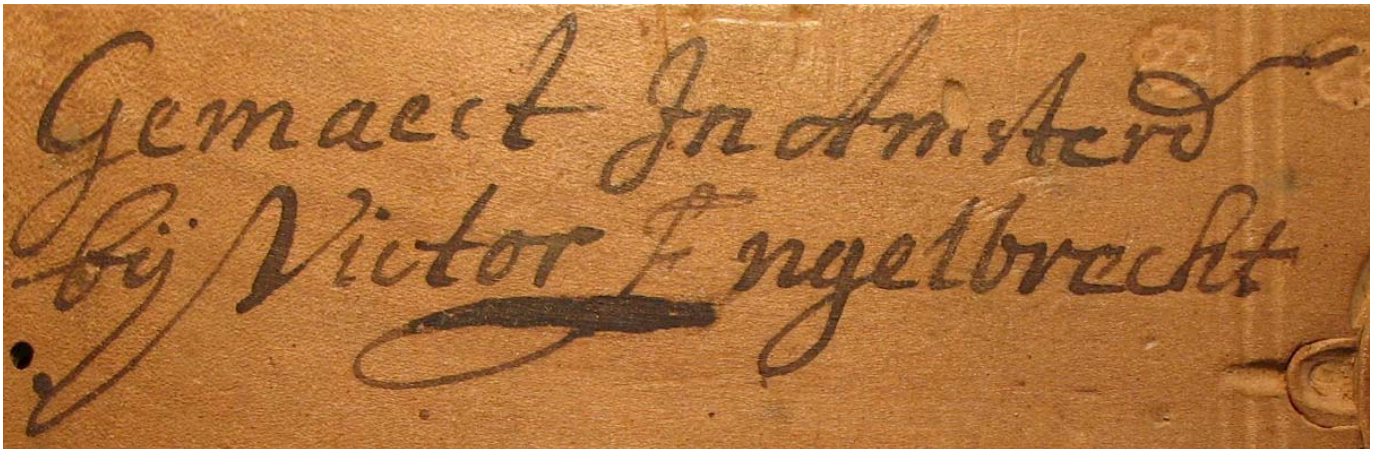 Gemaect In Amsterd
bij Victor Engelbrecht